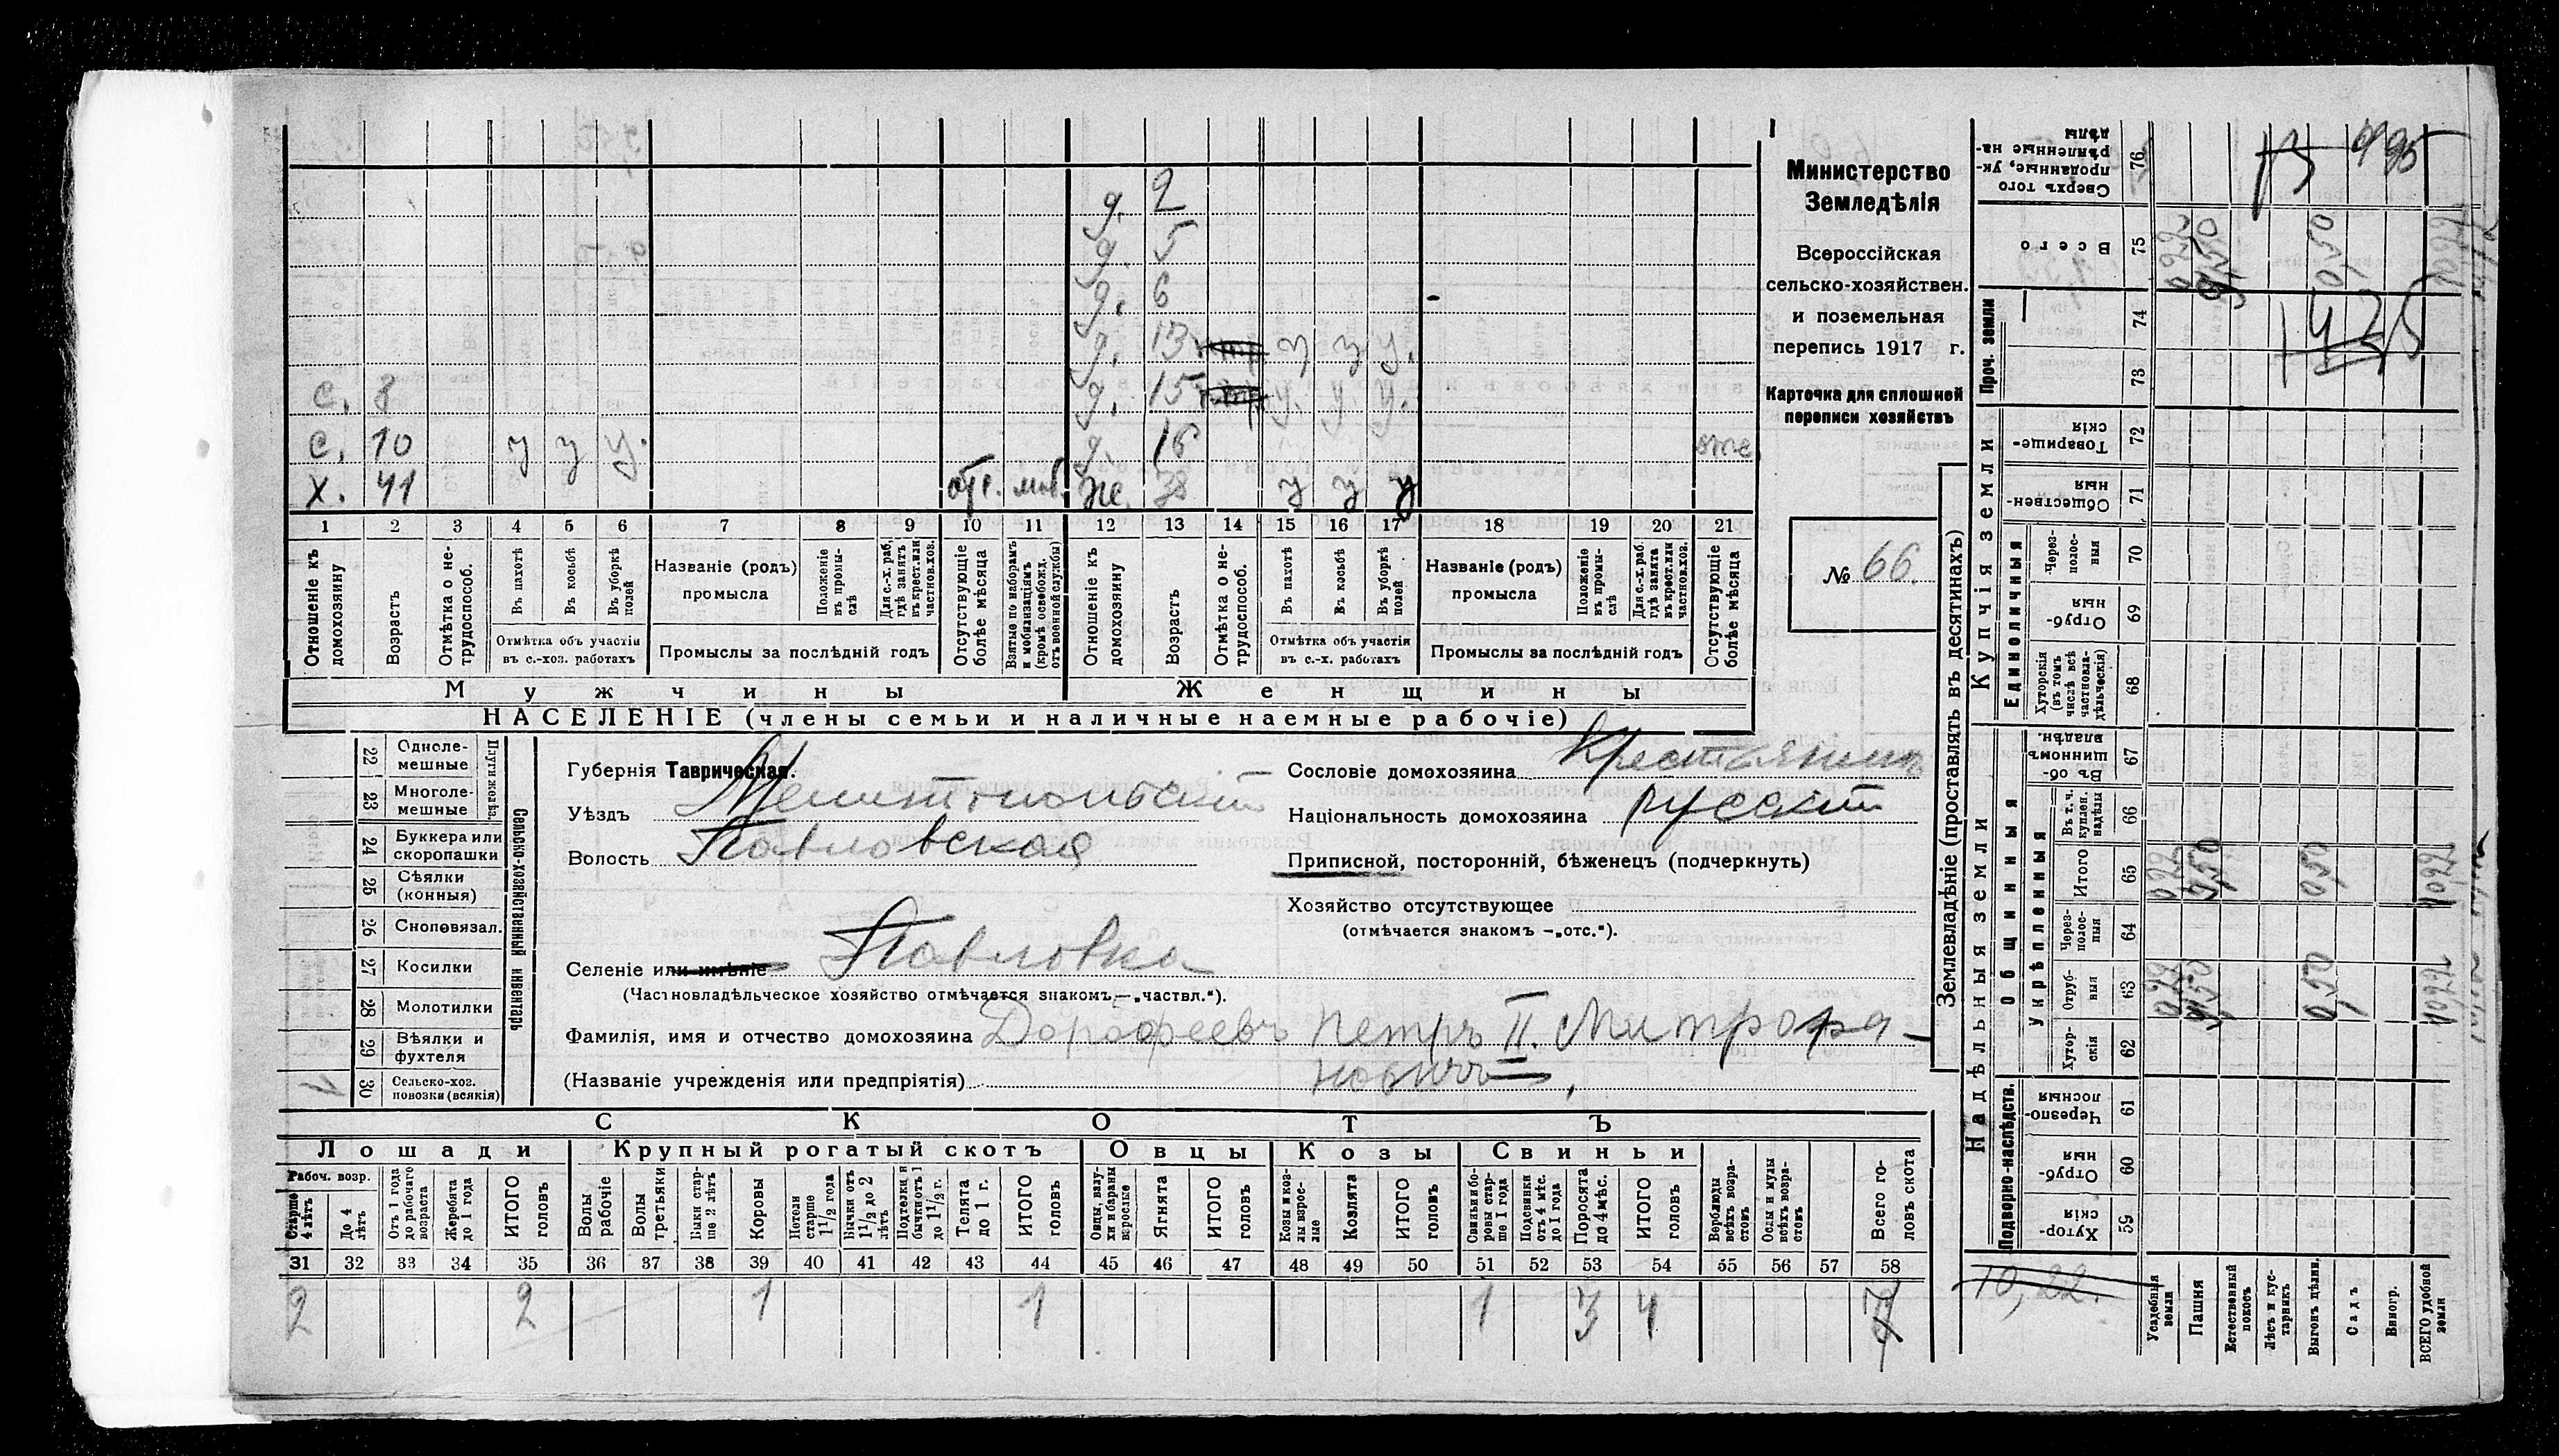 Министерство
Земледѣлія
Всероссійская
сельско-хозяйствен.
и поземельная
перепись 1917 г.
Карточка для сплошной
переписи хозяйствъ
№ 66.
д. 2
д. 5
д. 6
д. 13 у у у.
с. 8 д. 15 у. у. у.
с. 10 у у у. д. 16 отс.
х. 41 отс. моб. же. 38 у у у
1 2 3 4 5 6 7 8 9 10 11 12 13 14 15 16 17 18 19 20 21
Отношеніе къ домохозяину
Возрастъ
Отмѣтка о не-трудоспособ.
Въ пахотѣ
Въ косьбѣ
Въ уборкѣ полей
Отмѣтка объ участіи
въ с.-хоз. работахъ
Названіе (родъ)
промысла
Положеніе въ промы-слѣ
Для с.-х. раб. гдѣ занятъ въ крест. или частнов. хоз.
Промыслы за послѣдній годъ
Отсутствующіе болѣе мѣсяца
Взятые по наборамъ и мобилизаціямъ (кромѣ освобожд. отъ военной службы)
Отношеніе къ домохозяину
Возрастъ
Отмѣтка о не-трудоспособ.
Въ пахотѣ
Въ косьбѣ
Въ уборкѣ полей
Отмѣтка объ участіи
въ с.-х. работахъ
Названіе (родъ)
промысла
Положеніе въ промы-слѣ
Для с.-х. раб. гдѣ занята въ крест. или частнов. хоз.
Промыслы за послѣдній годъ
Отсутствующіе болѣе мѣсяца
Мужчины Женщины
НАСЕЛЕНІЕ (члены семьи и наличные наемные рабочіе)
Сельско-хозяйственный инвентарь
Плуги желѣз.
22 Одноле-мешные
23 Многоле-мешные
24 Буккера или скоропашки
25 Сѣялки (конныя)
26 Сноповязал.
27 Косилки
28 Молотилки
29 Вѣялки и фухтеля
30 Сельско-хоз. повозки (всякія) 1
Губернія Таврическая.
Уѣздъ Мелитопольскій
Волость Павловская
Селеніе или имѣніе Павловка
(Частновладѣльческое хозяйство отмѣчается знакомъ — „частвл.“).
Фамилія, имя и отчество домохозяина Дорофеевъ Петръ II. Митрофа-
(Названіе учрежденія или предпріятія) новичъ
Сословіе домохозяина Крестьянинъ
Національность домохозяина русскій
Приписной, посторонній, бѣженецъ (подчеркнуть)
Хозяйство отсутствующее
(отмѣчается знакомъ —„отс.“).
СКОТЪ
Лошади Крупный рогатый скотъ Овцы Козы Свиньи
Рабоч. возр.
Старше 4 лѣтъ
До 4 лѣтъ
Отъ 1 года до рабочаго возраста
Жеребята до 1 года
ИТОГО головъ
Волы рабочіе
Волы третьяки
Быки стар-ше 2 лѣтъ
Коровы
Нетели старше 1½ года
Бычки отъ 1½ до 2 лѣтъ
Подтелки и бычки отъ 1 до 1½ г.
Телята до 1 г.
ИТОГО головъ
Овцы, валу-хи и бараны взрослые
Ягнята
ИТОГО головъ
Козы и коз-лы взрос-лые
Козлята
ИТОГО головъ
Свиньи и бо-ровы стар-ше 1 года
Подсвинки отъ 4 мѣс. до 1 года
Поросята до 4 мѣс.
ИТОГО головъ
Верблюды всѣхъ возра-стовъ
Ослы и мулы всѣхъ возра-стовъ
Всего го-ловъ скота
31 32 33 34 35 36 37 38 39 40 41 42 43 44 45 46 47 48 49 50 51 52 53 54 55 56 57 58
2 2 1 1 1 3 4 7
Землевладѣніе (проставлять въ десятинахъ)
Надѣльныя земли Купчія земли Проч. земли
Подворно-наслѣдств.
Общинныя
Укрѣпленныя
Единоличныя
59 Хутор-скія
60 Отруб-ныя
61 Черезпо-лосныя
62 Хутор-скія
63 Отруб-ныя 0,22 9,50 0,50 10,22
64 Черезполос-ныя
65 Итого 0,22 9,50 0,50 10,22
66 Въ т. ч. куплен. надѣлы
67 Въ об-щинномъ владѣн.
68 Хуторскія (въ томъ числѣ всѣ частновла-дѣльческія)
69 Отруб-ныя
70 Черезполос-ныя
71 Обществен-ныя
72 Товарище-скія
73
74
75 Всего 0,22 9,50 0,50 10,22
76 Сверхъ того проданные, ук-рѣпленные на-дѣлы
10,22.
Усадебныя земли
Пашня
Естественный покосъ
Лѣсъ и кус-тарникъ
Выгонъ цѣлин.
Садъ
Виногр.
ВСЕГО удобной земли